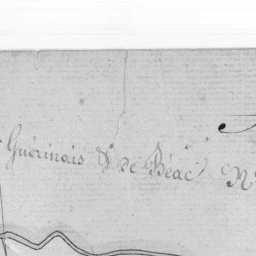 Guérinais & de Béac N